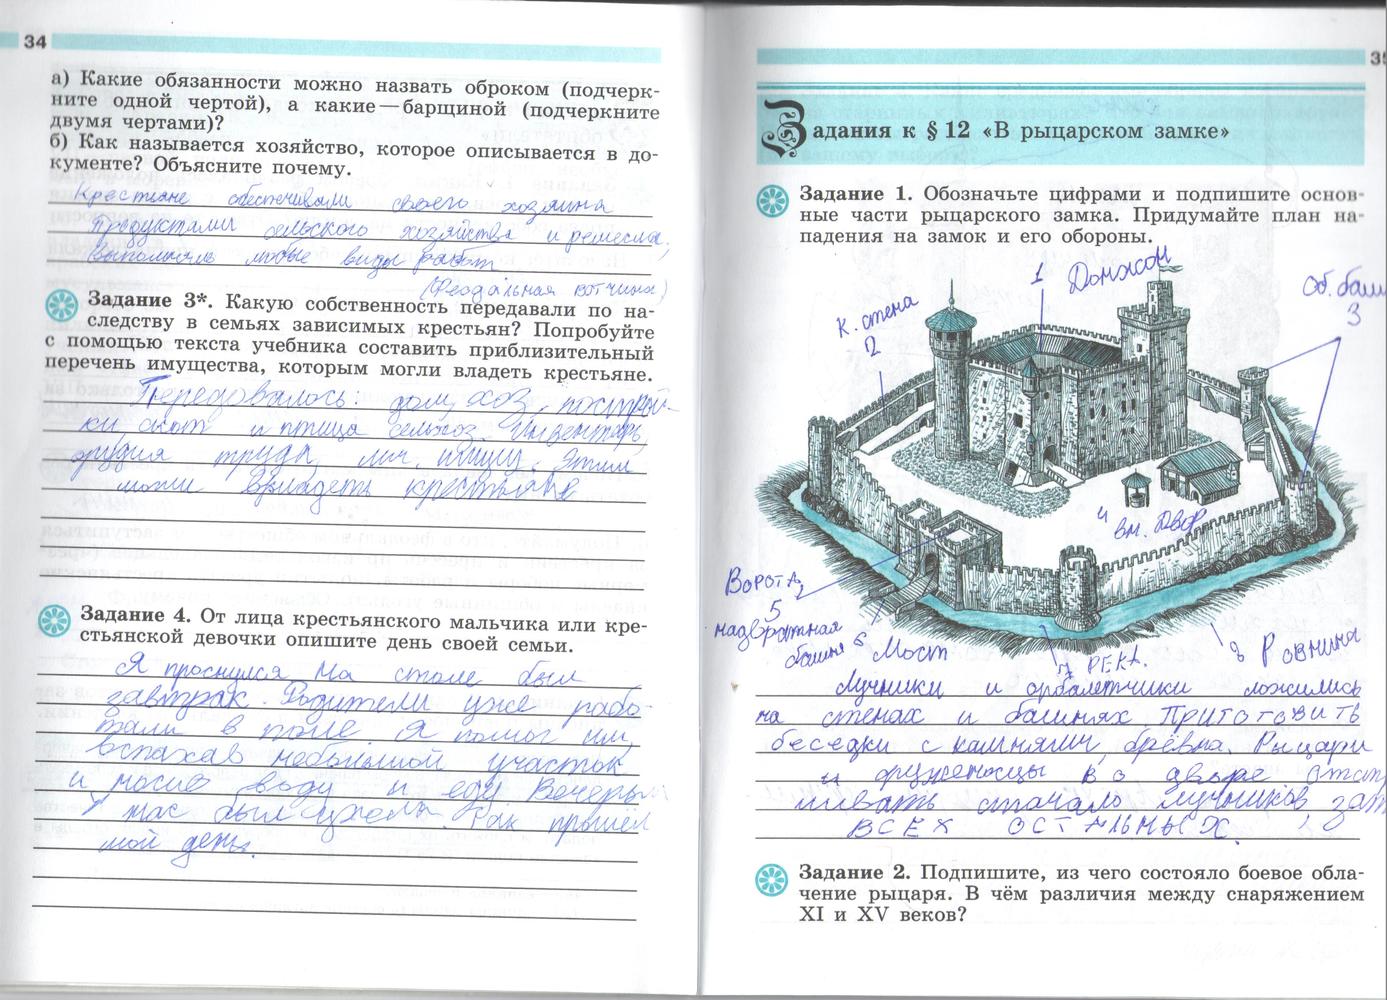 34
а) Какие обязанности можно назвать оброком (подчерк-
ните одной чертой), а какие — барщиной (подчеркните
двумя чертами)?
б) Как называется хозяйство, которое описывается в до-
кументе? Объясните почему.
Крестьяне обеспечивали своего хозяина
продуктами сельского хозяйства и ремесла,
выполняли любые виды работ
(Феодальная вотчина)
Задание 3*. Какую собственность передавали по на-
следству в семьях зависимых крестьян? Попробуйте
с помощью текста учебника составить приблизительный
перечень имущества, которым могли владеть крестьяне.
Передовалось: дом, хоз. построй-
ки скот и птица сельхоз. Инвентарь,
орудия труда, лич. вещи. Этим
могли владеть крестьяне
Задание 4. От лица крестьянского мальчика или кре-
стьянской девочки опишите день своей семьи.
Я проснулся На столе был
завтрак. Родители уже рабо-
тали в поле Я помог им,
вспахав небольшой участок
и носил воду и еду. Вечером
у нас был ужин. Так прошёл
мой день.
35
Задания к § 12 «В рыцарском замке»
Задание 1. Обозначьте цифрами и подпишите основ-
ные части рыцарского замка. Придумайте план на-
падения на замок и его обороны.
1 Донжон
К. стена
2
Об. баш
3
4
вн. Двор
Ворота,
5
надвратная
башня
6 Мост
7 РЕКА.
8 Равнина
Лучники и арбалетчики ложились
на стенах и башнях. Приготовить
беседки с камнями, брёвна. Рыцари
и оруженосцы во дворе
сначало лучников, зат
ВСЕХ ОСТАЛЬНЫХ.
Задание 2. Подпишите, из чего состояло боевое обла-
чение рыцаря. В чём различия между снаряжением
XI и XV веков?